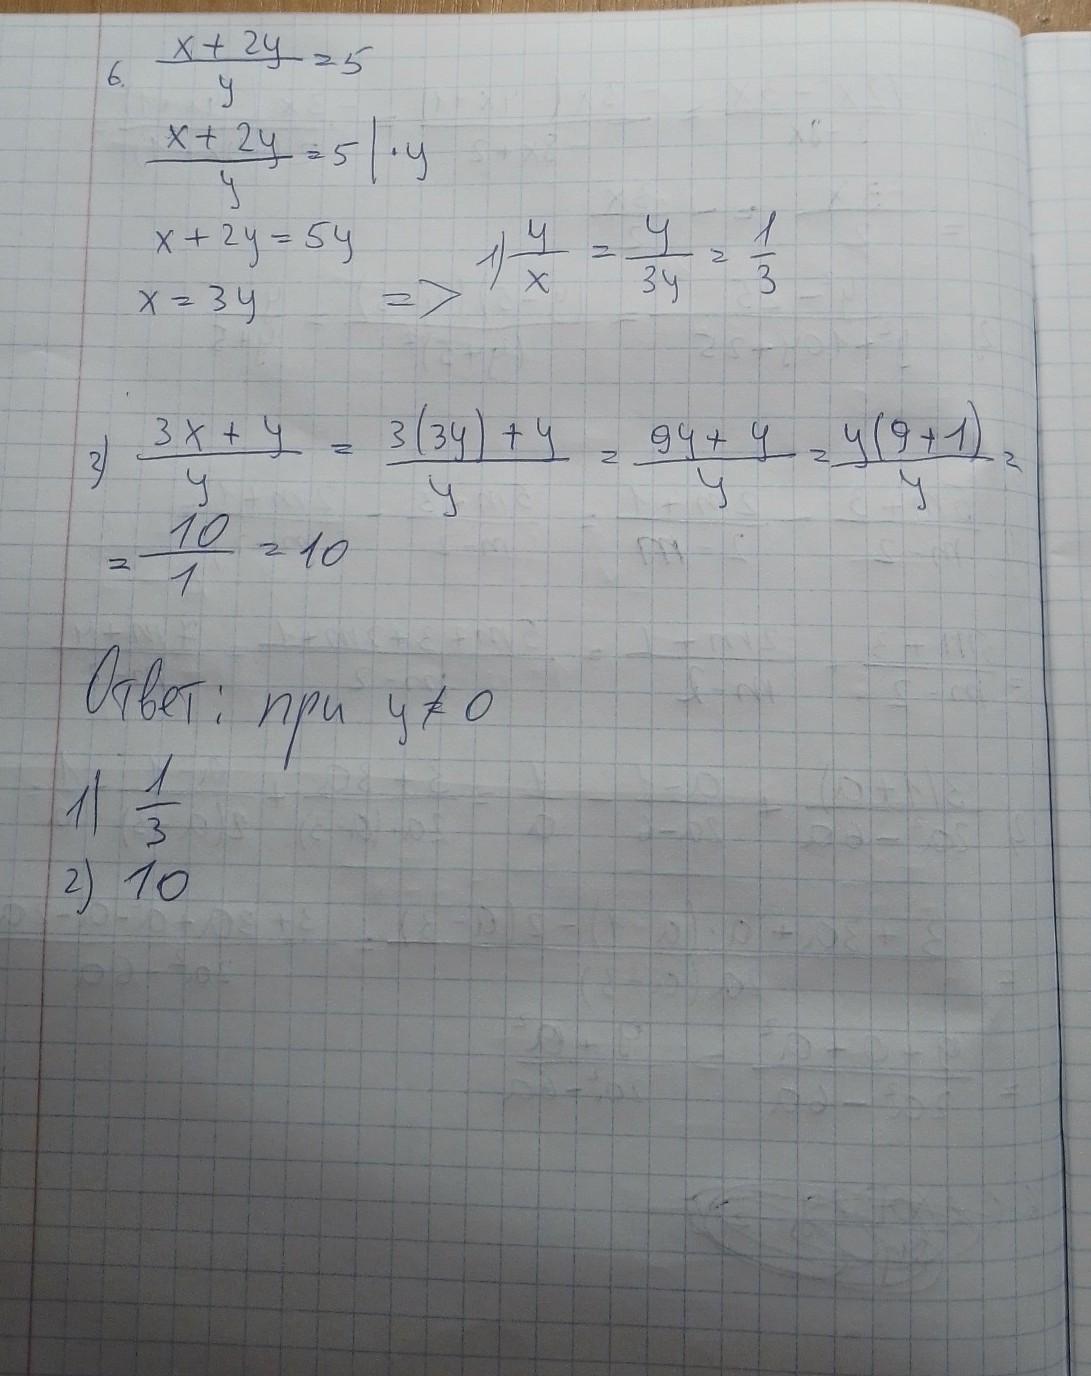 6. (x + 2y)/y = 5
(x + 2y)/y = 5 | · y
x + 2y = 5y
x = 3y => 1) y/x = y/3y = 1/3
2) (3x + y)/y = (3(3y) + y)/y = (9y + y)/y = y(9 + 1)/y =
= 10/1 = 10
Ответ: при y ≠ 0
1) 1/3
2) 10